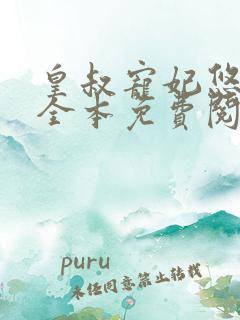 皇叔寵妃悠
全本免費閱
puru
未经同意禁止转载